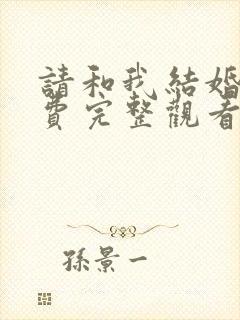 請和我結婚
費完整觀看
孫景一